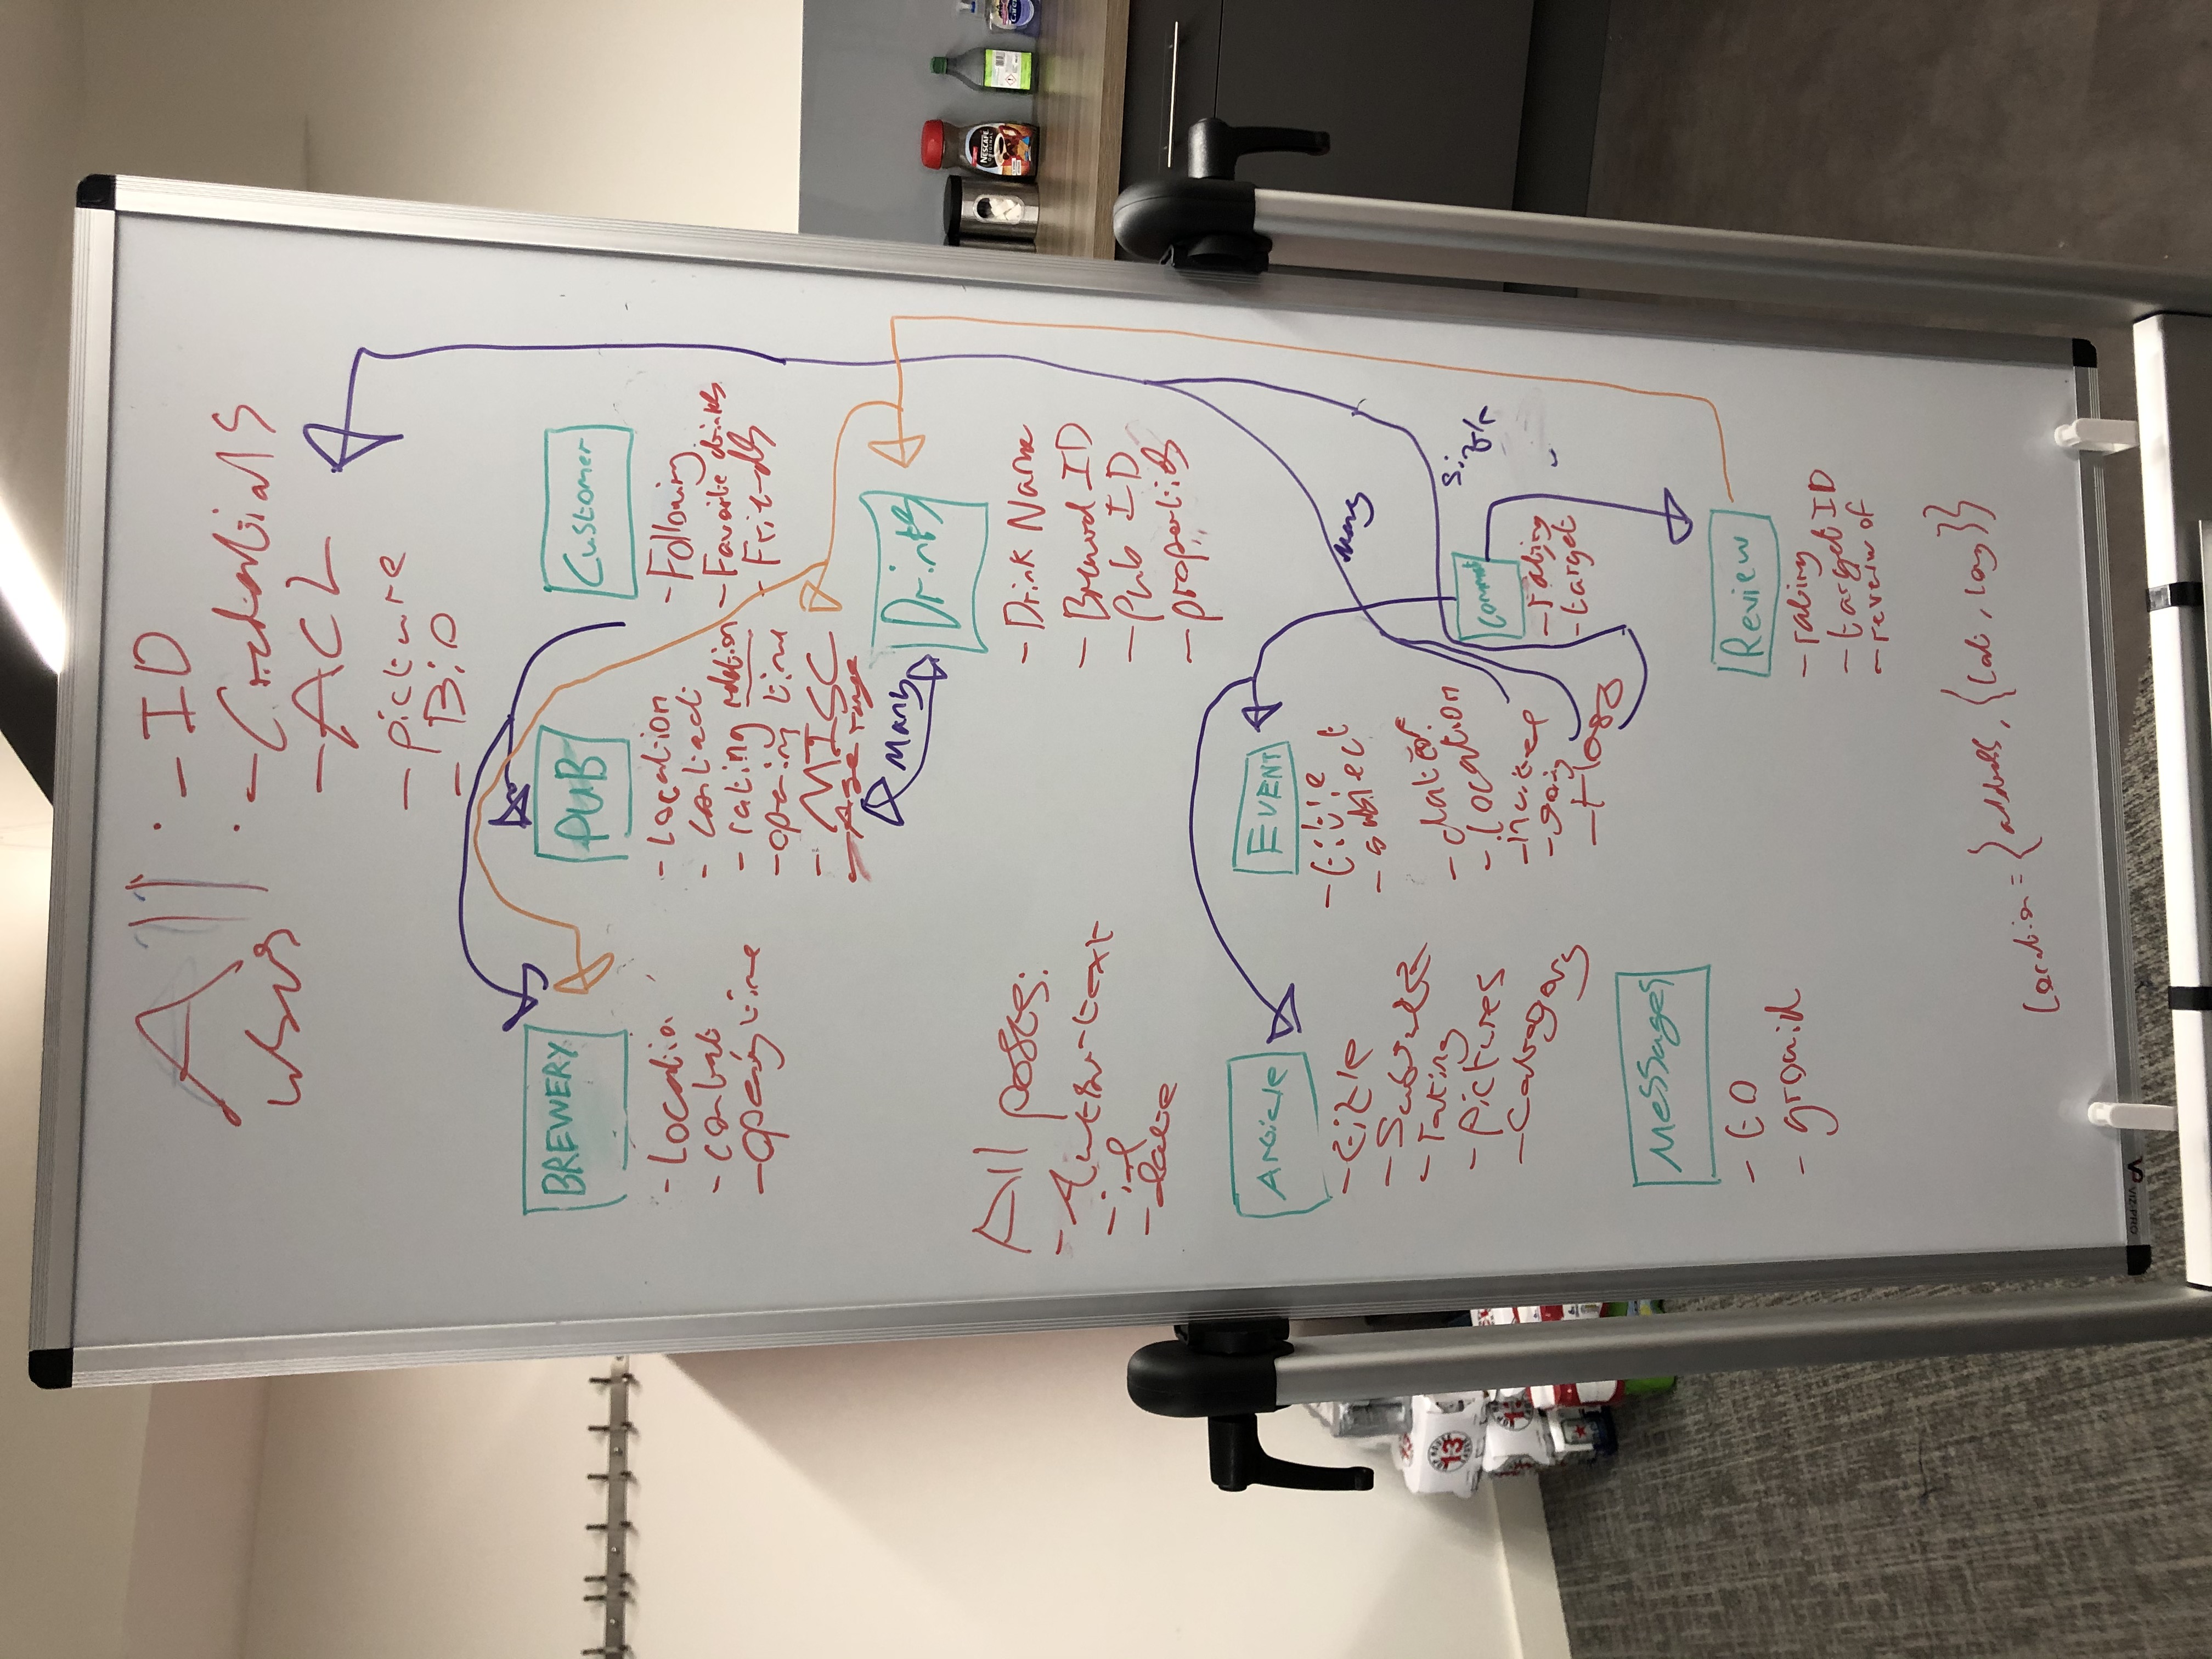 All users :
- ID
- Credentials
- ACL
- picture
- Bio
BREWERY
- Locatio
- contat
- opening time
PUB
- Location
- contact
- rating relation
- opening time
- MISC
- Age range
Customer
- Following
- Favorite drinks
- Friends
Many
Drinks
- Drink Name
- ID
- Pub ID
- properties
All posts:
- Author - text
- id
- date
Article
- title
- rating
- pictures
- Category
EVENT
- title
- subject
- date of
- location
- invitee
- going
Many
Single
Comment
- rating
- target
Messages
- to
Review
- rating
- target ID
- reveiw of
Location = {address, {lat, long}}
VIZ-PRO
NESCAFE
ORIGINAL
13